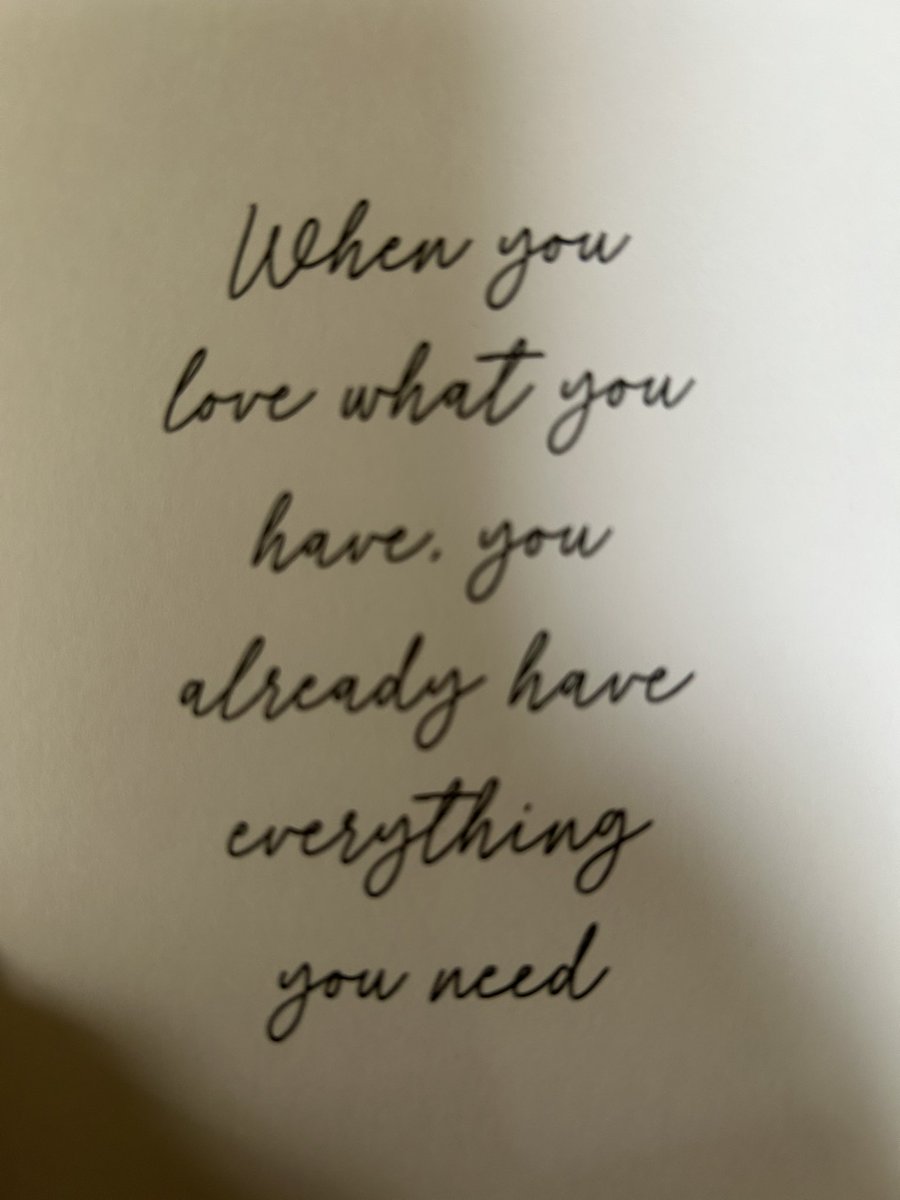 When you
love what you
have. you
already have
everything
you need